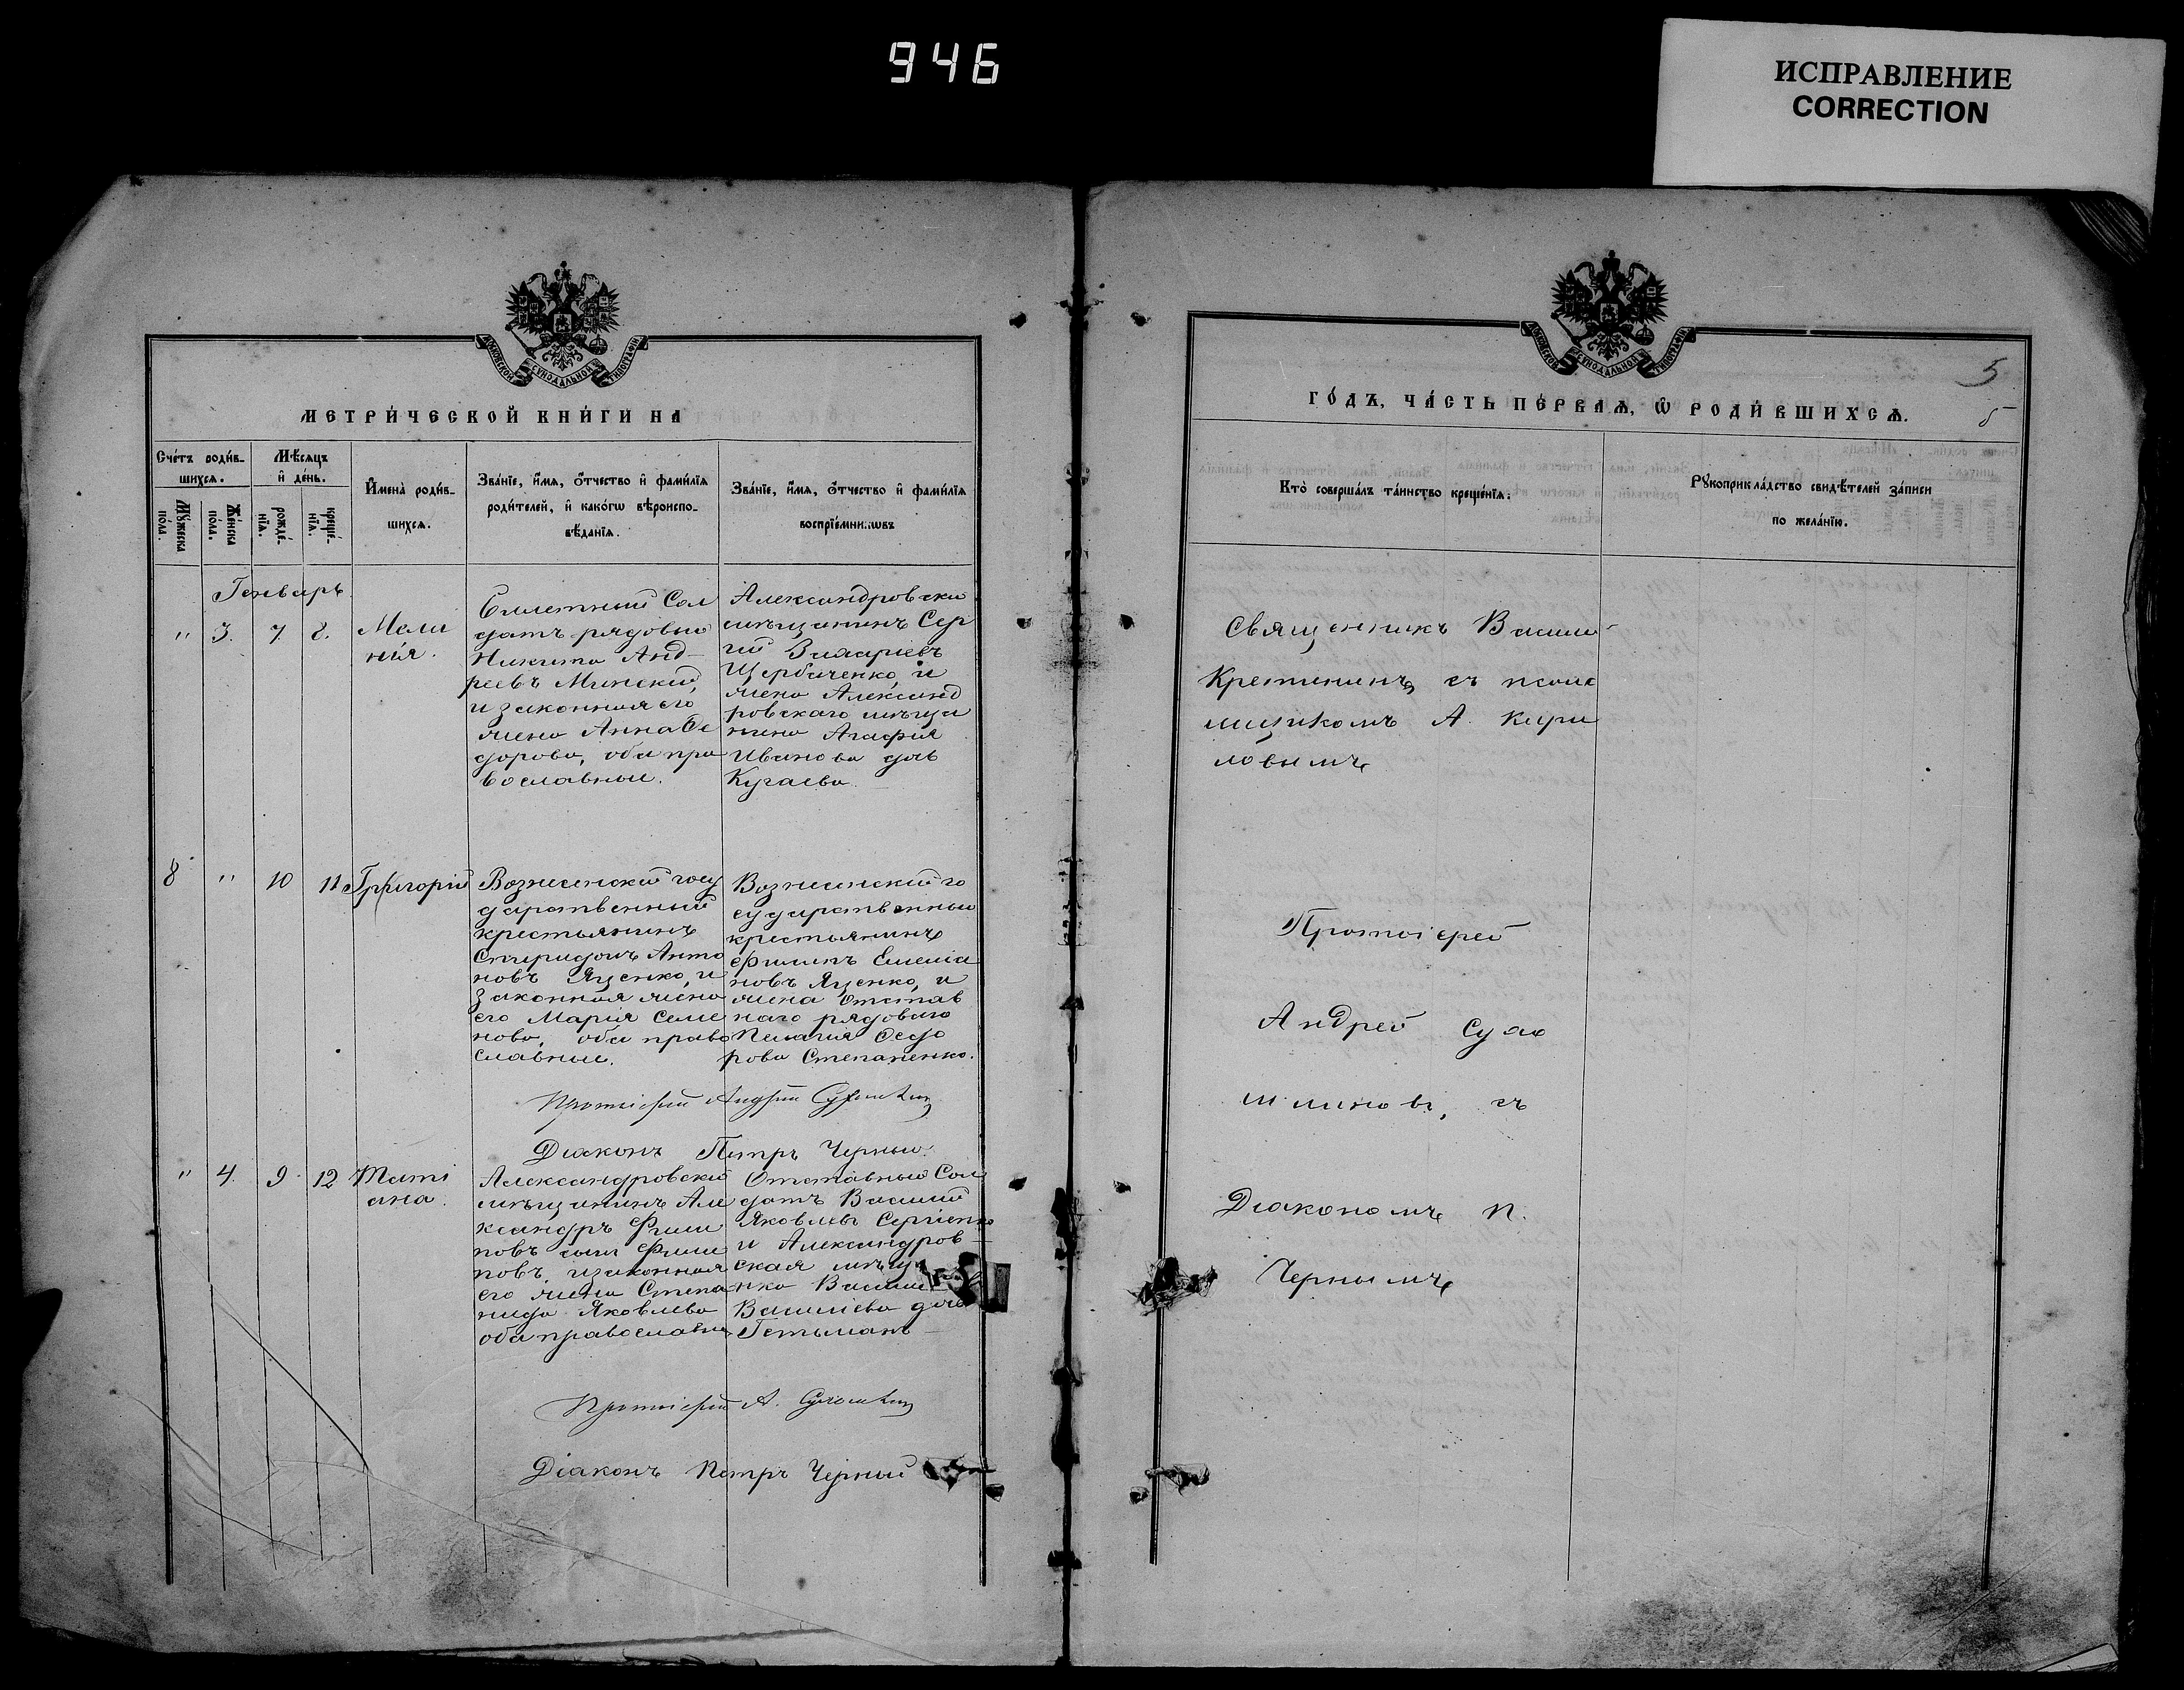 946
ИСПРАВЛЕНИЕ
CORRECTION
МОСКОВСКОЙ СѴНОДАЛЬНОЙ ТИПОГРАФІИ
МЕТРИ́ЧЕСКОЙ КНИ́ГИ НА
Сче́тъ роди́в-
шихсѧ.
Мѣ́сѧцъ
и҆ де́нь.
Мꙋ́жеска
пола.
Же́нска
по́ла.
рожде́-
нїѧ.
креще́-
нїѧ.
И҆мена̀ роди́в-
шихсѧ.
Зва́нїе, и҆́мѧ, ѻ҆́тчество и҆ фами́лїѧ
роди́телей, и҆ како́гѡ вѣроиспо-
вѣ́данїѧ.
Зва́нїе, и҆́мѧ, ѻ҆́тчество и҆ фами́лїѧ
воспрїе́мникѡвъ
Генварь
" 3. 7. 8.
Мела
нія.
Билетный Сол
датъ рядовый
Никита Анд-
реевъ Минский,
и законная его
жена Анна Ѳе
дорова, оба пра
вославные.
Александровский
мѣщанинъ Сер
гій Захаріевъ
Щербаченко, и
жена Александ
ровскаго мѣща
нина Агафия
Иванова дочь
Кугаева.
8 " 10 11
Григорій
Вознесенский госу
дарственный
крестьянинъ
Спиридонъ Анто
новъ Яценко, и
законная жена
его Мария Семе
нова, оба право
славные.
Вознесенский го
сударственный
крестьянинъ
Филипъ Емелиа
новъ Яценко, и
жена Отстав
наго рядоваго
Пелагия Ѳедо
рова Степаненко.
Протоіерей Андрей Сухомлинъ
Діаконъ Петръ Черный.
" 4. 9. 12
Таті
ана.
Александровский
мѣщанинъ Але
ксандръ Фили
повъ сынъ Фили
повъ, и законная
его жена Степа
нида Яковлева
оба православн
Отставный Сол
датъ Василий
Яковлевъ Сергіенко
и Александров-
ская мѣща
нка Васили
Василиева дочь
Гетьманъ
Протоіерей А. Сухомлинъ
Діаконъ Петръ Черный
5
5
ГО́ДЪ, ЧА́СТЬ ПЕ́РВАѦ, Ѡ҆ РОДИ́ВШИХСѦ.
Кто̀ соверша́лъ та́инство креще́нїѧ:
Рꙋкоприкла́дство свидѣ́телей за́писи
по жела́нїю.
Священникъ Васили
Крестининъ съ псало
мщикомъ А. Кири
ловымъ
Протоіерей
Андрей Сухо
млиновъ, съ
Діакономъ П.
Чернымъ